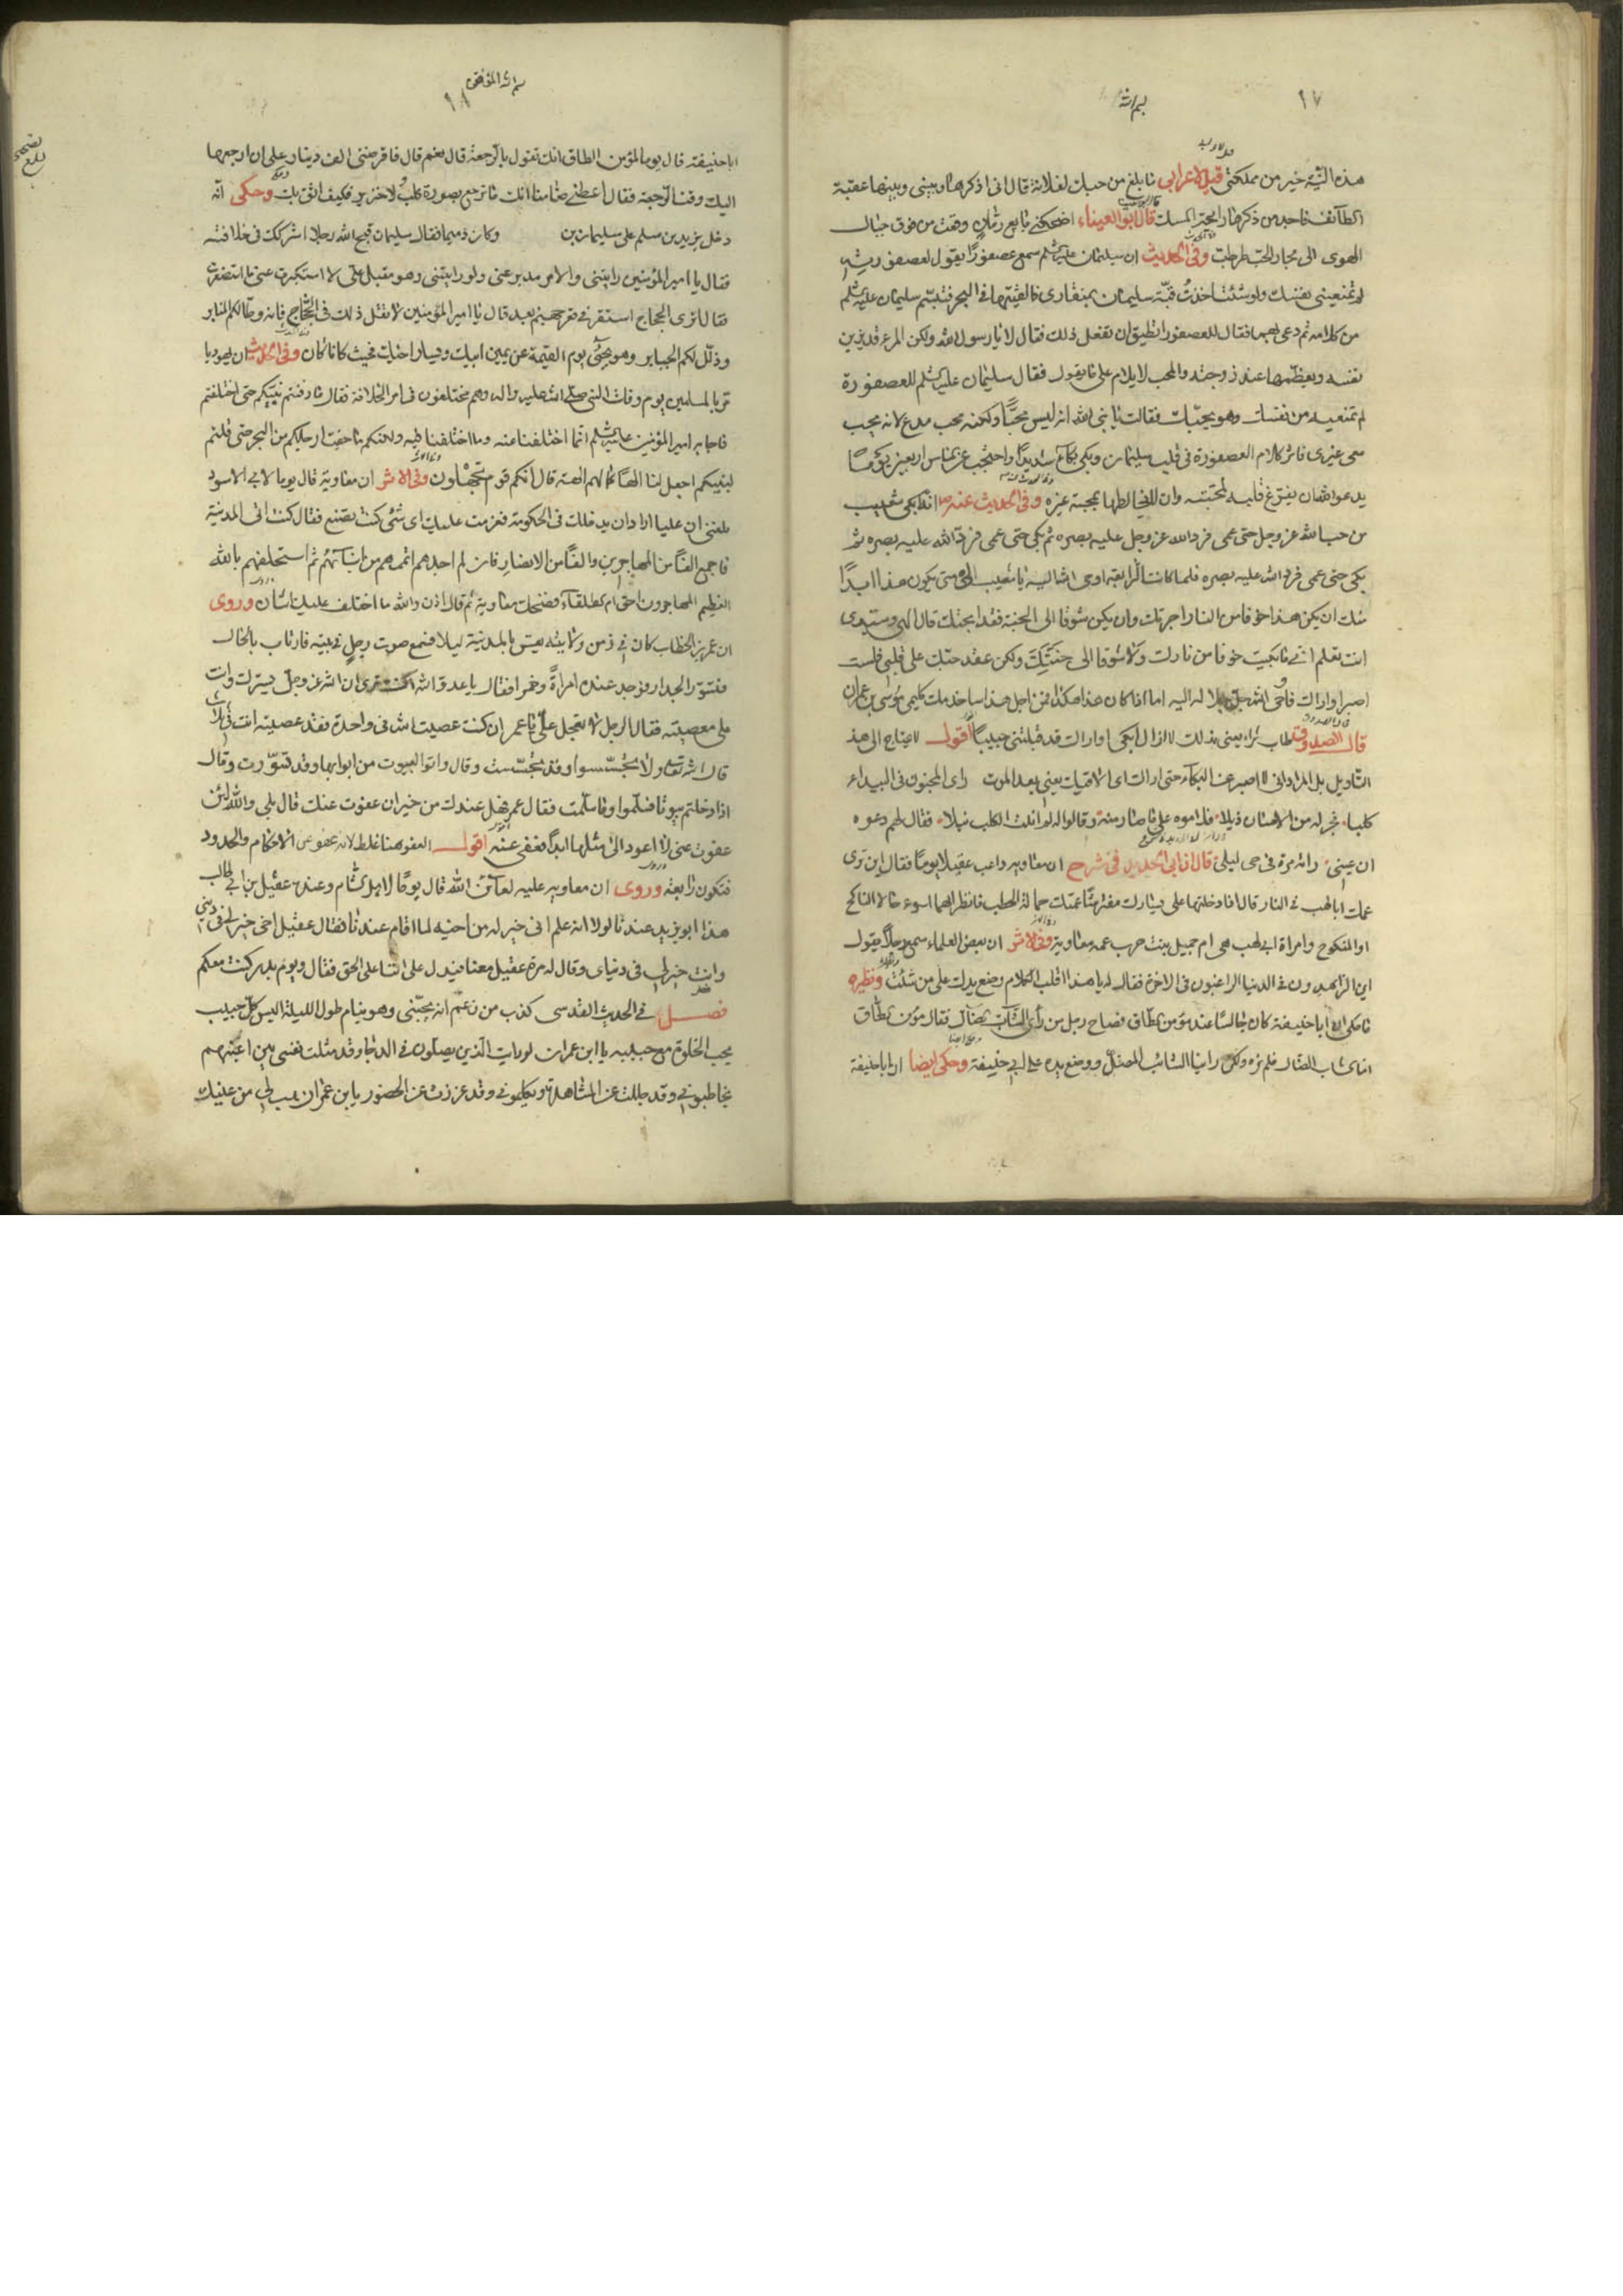 ١٧
بسم الله
هذه النية خير من مملكتي قيل لاعرابي ما بلغ من حبك لفلانة قال اني اذكرها وبيني وبينها عقبة
الطائف فاجد من ذكرها رائحة المسك قال ابو العيناء اضحكني بايع رمان وقعت من فوق جبال
الهوى الى بحار الحب طرطب وفي الحديث ان سليمان عليه السلم سمع عصفورا يقول لعصفورته
لم تمنعيني نفسك ولو شئت اخذت قبة سليمان بمنقاري فالقيتها في البحر فتبسم سليمان عليه السلم
من كلامه ثم دعى بهما فقال للعصفور اتطيق ان تفعل ذلك فقال لا يا رسول الله ولكن المرء قد يزين
نفسه ويعظمها عند زوجته والمحب لا يلام على ما يقول فقال سليمان عليه السلم للعصفورة
لم تمنعيه من نفسك وهو يحبك فقالت يا نبي الله انه ليس محبا ولكنه محب مدع لانه يحب
معي غيري فاثر كلام العصفورة في قلب سليمان وبكى بكاء شديدا واحتجب عن الناس اربعين يوما
يدعو الله ان يفرغ قلبه لمحبته وان لا يخالطها بمحبة غيره وفي الحديث عنه ص انه بكى شعيب
من حب الله عز وجل حتى عمى فرد الله عز وجل عليه بصره ثم بكى حتى عمى فرد الله عليه بصره ثم
بكى حتى عمى فرد الله عليه بصره فلما كانت الرابعة اوحى الله اليه يا شعيب الى متى يكون هذا ابدا
منك ان يكن هذا خوفا من النار اجرتك وان يكن شوقا الى الجنة فقد ابحتك قال الهي وسيدي
انت تعلم اني ما بكيت خوفا من نارك ولا شوقا الى جنتك ولكن عقد حبك على قلبي فلست
اصبر او اراك فاوحى الله جل جلاله اليه اما اذا كان هذا هكذا فمن اجل هذا ساخدمك كليمي موسى بن عمران
قال الصدوق طاب ثراه يعني بذلك لا ازال ابكي او اراك قد قبلتني حبيبا اقول لا يحتاج الى هذ
التاويل بل المراد اني لا اصبر عن البكاء حتى اراك اي الاقيك يعني بعد الموت راى المجنون في البيداء
كلبا فجر له من الاحسان ذيلا فلاموه على ما صار منه وقالوا له لم انلت الكلب نيلا فقال لهم دعوه
ان عيني راته مرة في حي ليلى قال ابن ابي الحديد في شرح ان معاويه داعب عقيلا يوما فقال اين ترى
عمك ابا لهب في النار قال اذا دخلتها على يسارك مفترشا عمتك حمالة الحطب فانظر ايهما اسوء حالا الناكح
او المنكوح وامراة ابي لهب هي ام جميل بنت حرب عمه معاوية وفي الاثر ان بعض العلماء سمع رجلا يقول
اين الزاهدون في الدنيا الراغبون في الاخرة فقال له يا هذا اقلب الكلام وضع يدك على من شئت ونظيره
ما حكي ان ابا حنيفة كان جالسا عند مؤمن الطاق فصاح رجل من راى الشاب الضال فقال مؤمن الطاق
اما الشاب الضال فلم نره ولكن راينا الشائب المضل ووضع يده على ابي حنيفة وحكى ايضا ان ابا حنيفة
بسم الله الموفق
١٨
ابا حنيفة قال يوما لمؤمن الطاق انك تقول بالرجعة قال نعم قال فاقرضني الف دينار على ان ارجعها
اليك وقت الرجعة فقال اعطني ضامنا انك ما ترجع بصورة كلب ولا خنزير فكيف اثق بك وحكى انه
دخل يزيد بن مسلم على سليمان بن وكان ذميما فقال سليمان قبح الله رجلا اشركك في خلافته
فقال يا امير المؤمنين رايتني والامر مدبر عني ولو رايتني وهو مقبل علي لاستكبرت عني ما استصغرت
فقال اترى الحجاج استقر في قعر جهنم بعد قال يا امير المؤمنين لا تقل ذلك في الحجاج فانه وطا لكم المنابر
وذلل لكم الجبابر وهو يجئ يوم القيمة عن يمين ابيك ويسار اخيك فحيث كانا كان وفي الحديث ان يهوديا
مر بالمسلمين يوم وفات النبي صلى الله عليه واله وهم مختلفون في امر الخلافة فقال ما دفنتم نبيكم حتى اختلفتم
فاجابه امير المؤمنين عليه السلم انما اختلفنا عنه وما اختلفنا فيه ولكنكم ما جفت ارجلكم من البحر حتى قلتم
لنبيكم اجعل لنا الها كما لهم الهة قال انكم قوم تجهلون وفي الاثر ان معاوية قال يوما لابي الاسود
بلغني ان عليا اراد ان يدخلك في الحكومة فعزمت عليك اى شئ كنت تصنع فقال كنت اتى المدينة
فاجمع الفا من المهاجرين والفا من الانصار فان لم اجدهم اتمهم من ابنائهم ثم استحلفهم بالله
العظيم المهاجرون احق ام الطلقاء فضحك معاوية ثم قال اذن والله ما اختلف عليك اثنان وروى
ان عمر بن الخطاب كان في زمن ولايته يعس بالمدينة ليلا فسمع صوت رجل في بيته فارتاب بالحال
فتسور الجدار فوجد عنده امراة وخمرا فقال يا عدو الله اكنت ترى ان الله عز وجل يسترك وانت
على معصيته فقال الرجل لا تعجل علي يا عمر ان كنت عصيت الله في واحدة فقد عصيته انت في ثلاث
قال الله تعالى ولا تجسسوا وقد تجسست وقال واتوا البيوت من ابوابها وقد تسورت وقال
اذا دخلتم بيوتا فسلموا وما سلمت فقال عمر فهل عندك من خير ان عفوت عنك قال بلى والله لئن
عفوت عني لا اعود الى مثلها ابدا فعفى عنه اقول العفو هنا غلط لانه عفو عن الاحكام والحدود
فتكون رابعة وروى ان معاويه عليه لعائن الله قال يوما لاهل الشام وعنده عقيل بن ابي طالب
هذا ابو يزيد عندنا لولا انه علم اني خير له من اخيه لما اقام عندنا فقال عقيل اخي خير لي في ديني
وانت خير لي في دنياى وقال له مرة عقيل معنا فيدل على اننا على الحق فقال ويوم بدر كنت معكم
فصل في الحديث القدسى كذب من زعم انه يحبني وهو ينام طول الليلة اليس كل حبيب
يحب الخلوة مع حبيبه يا ابن عمران لو رايت الذين يصلون في الدجا وقد مثلت نفسي بين اعينهم
يخاطبوني وقد جللت عن المشاهدة ويكلموني وقد عززت عن الحضور يا بن عمران هب لي من عينيك
بلغ